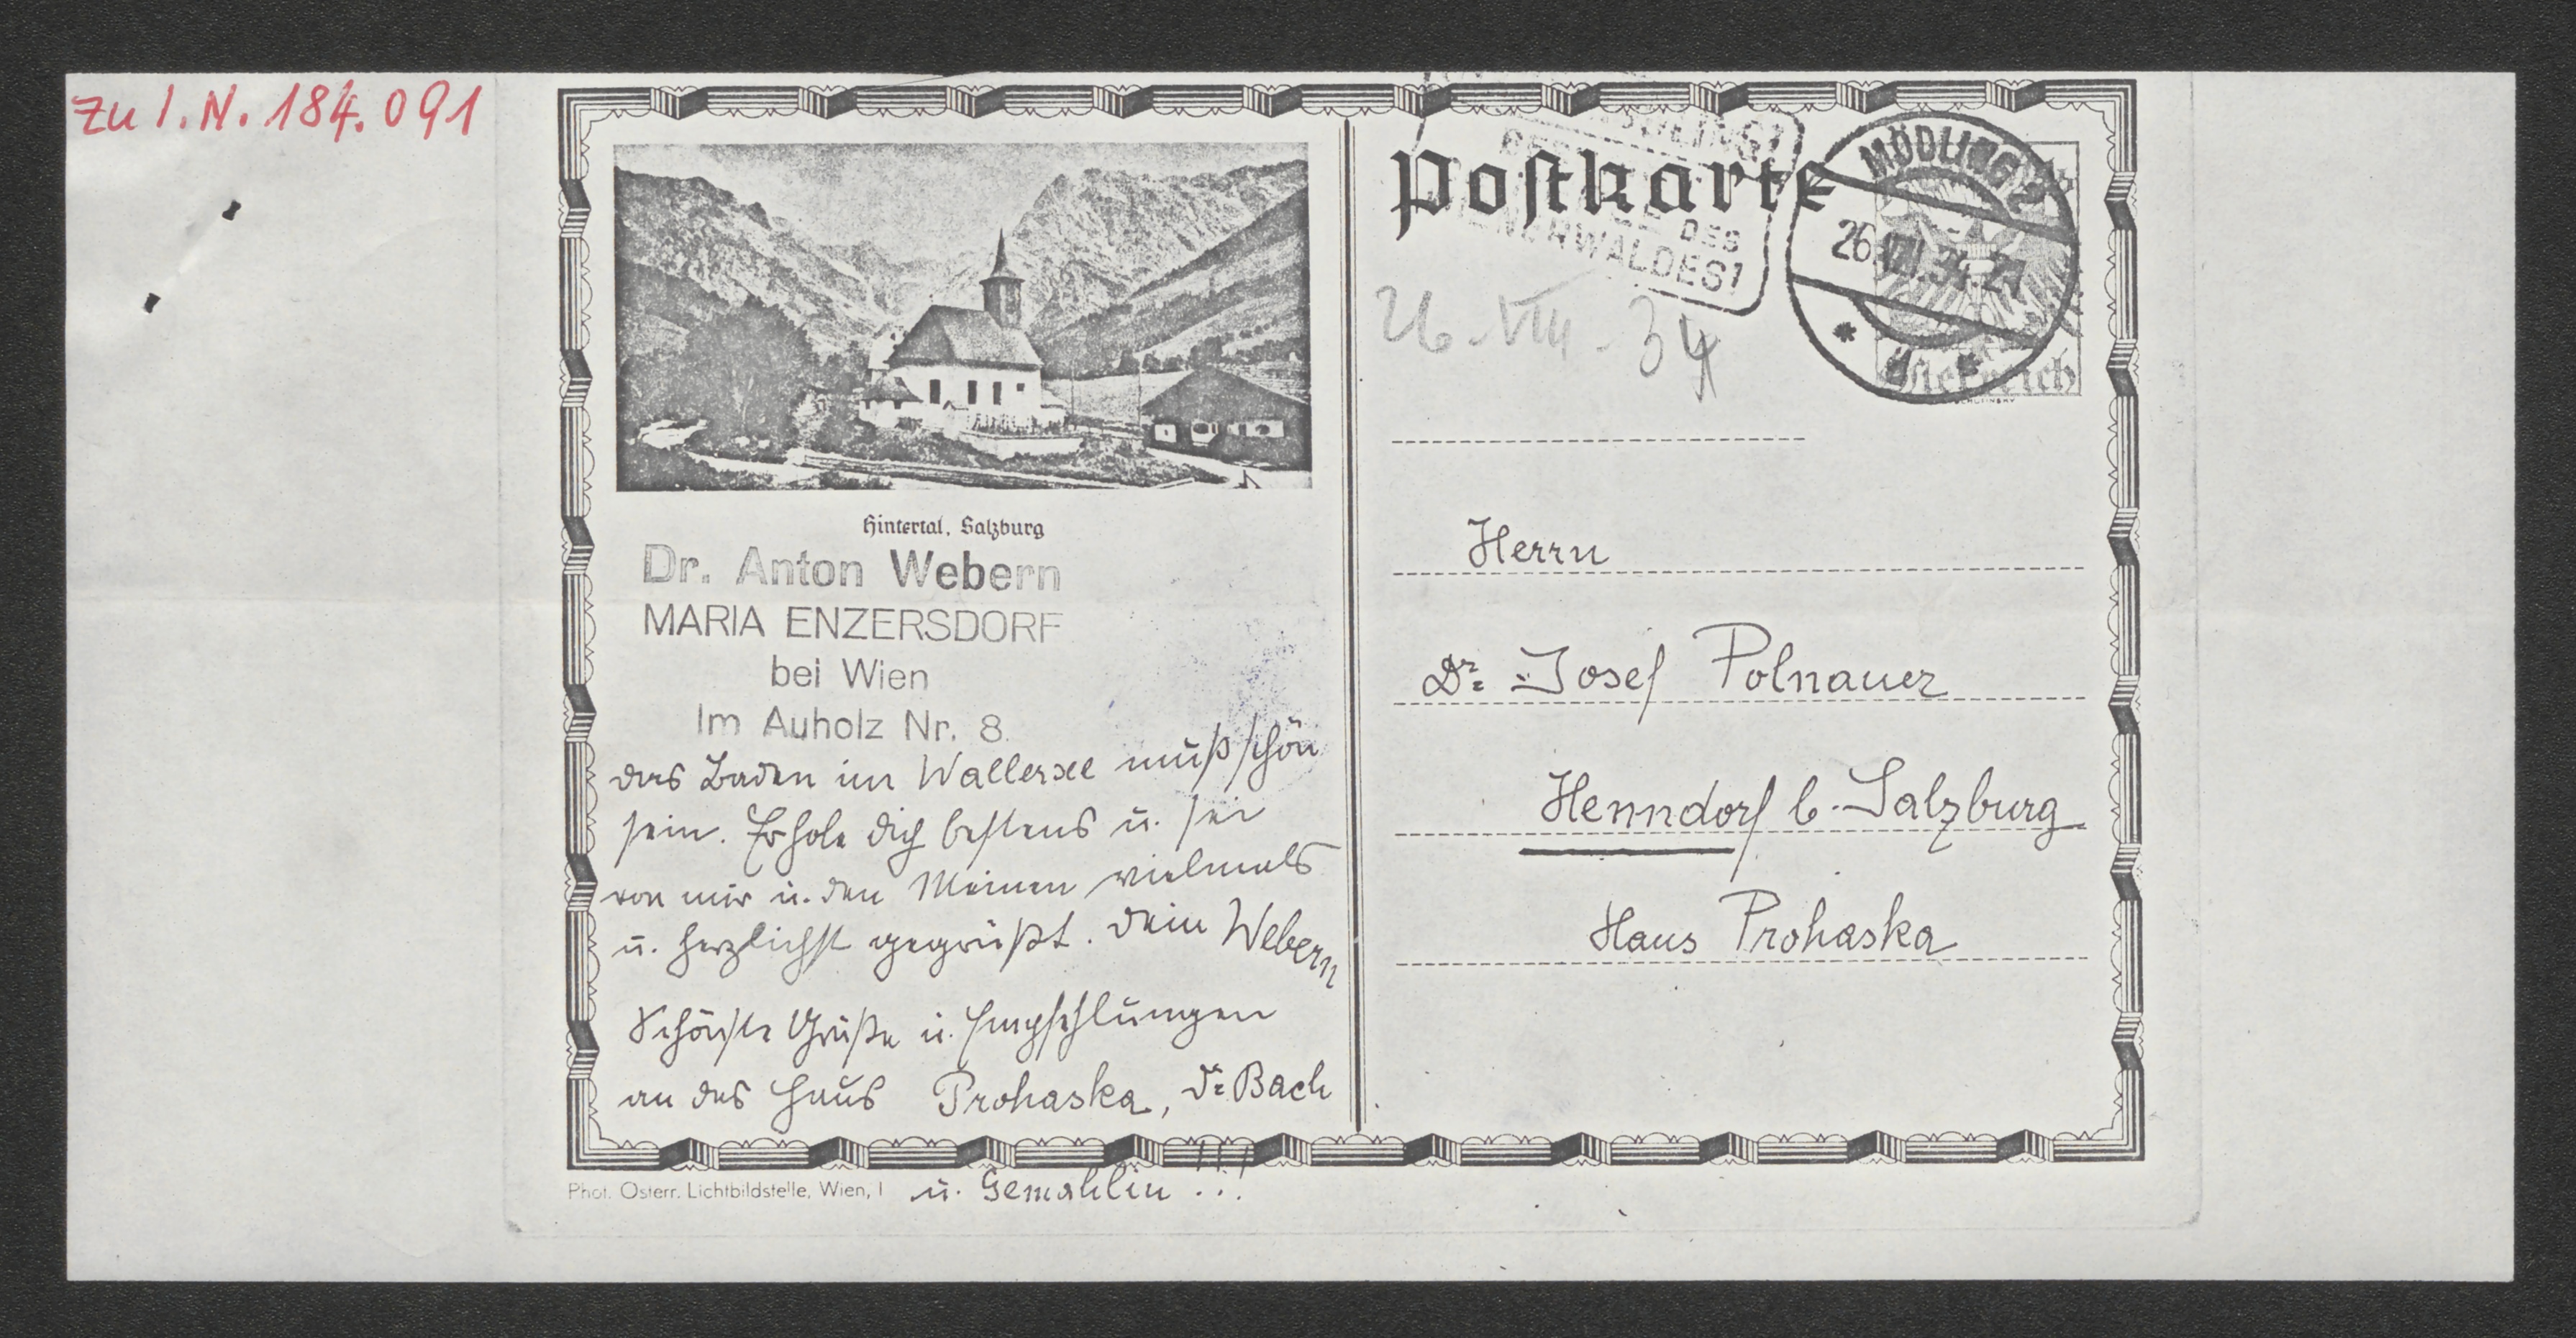 zu I.N. 184.091
Hintertal, Salzburg
Dr. Anton Webern
MARIA ENZERSDORF
bei Wien
Im Auholz Nr. 8
das Baden im Wallersee muß schön
sein. Erhole dich bestens u. sei
von mir u. den Meinen vielmals
u. herzlichst gegrüßt. Dein Webern
Schönste Grüße u. Empfehlungen
an das Haus Prohaska, Dr Bach
u. Gemahlin !!!
Phot. Österr. Lichtbildstelle, Wien, I
Postkarte
DES
WIENERWALDES!
MÖDLING 2
26.VIII.34.21
Österreich
26.VIII.34
Herrn
Dr. Josef Polnauer
Henndorf b. Salzburg
Haus Prohaska